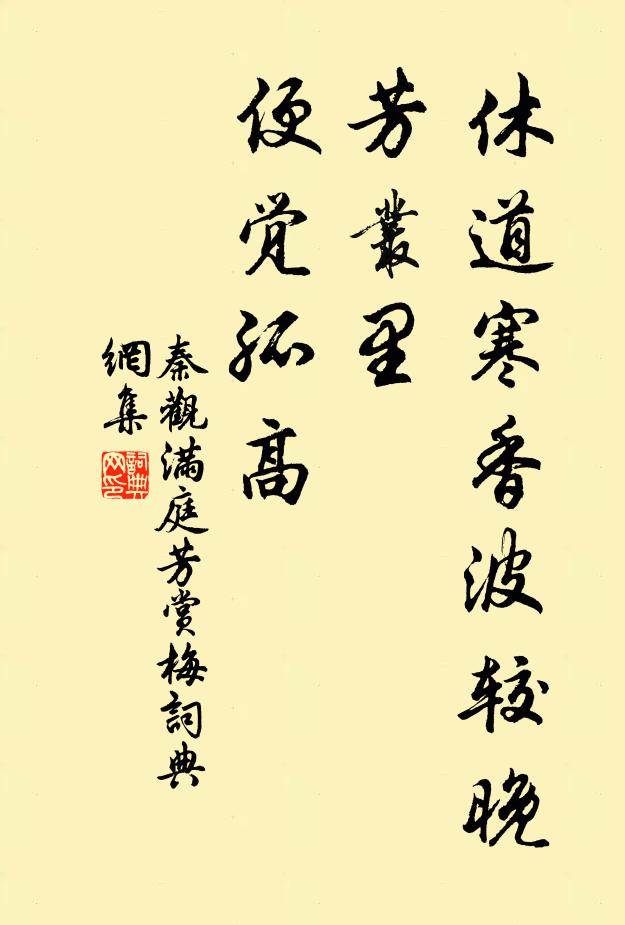 休道寒香波较晚
芳叢里
便觉孤高
秦觀满庭芳赏梅詞典
網集
詞典
网印